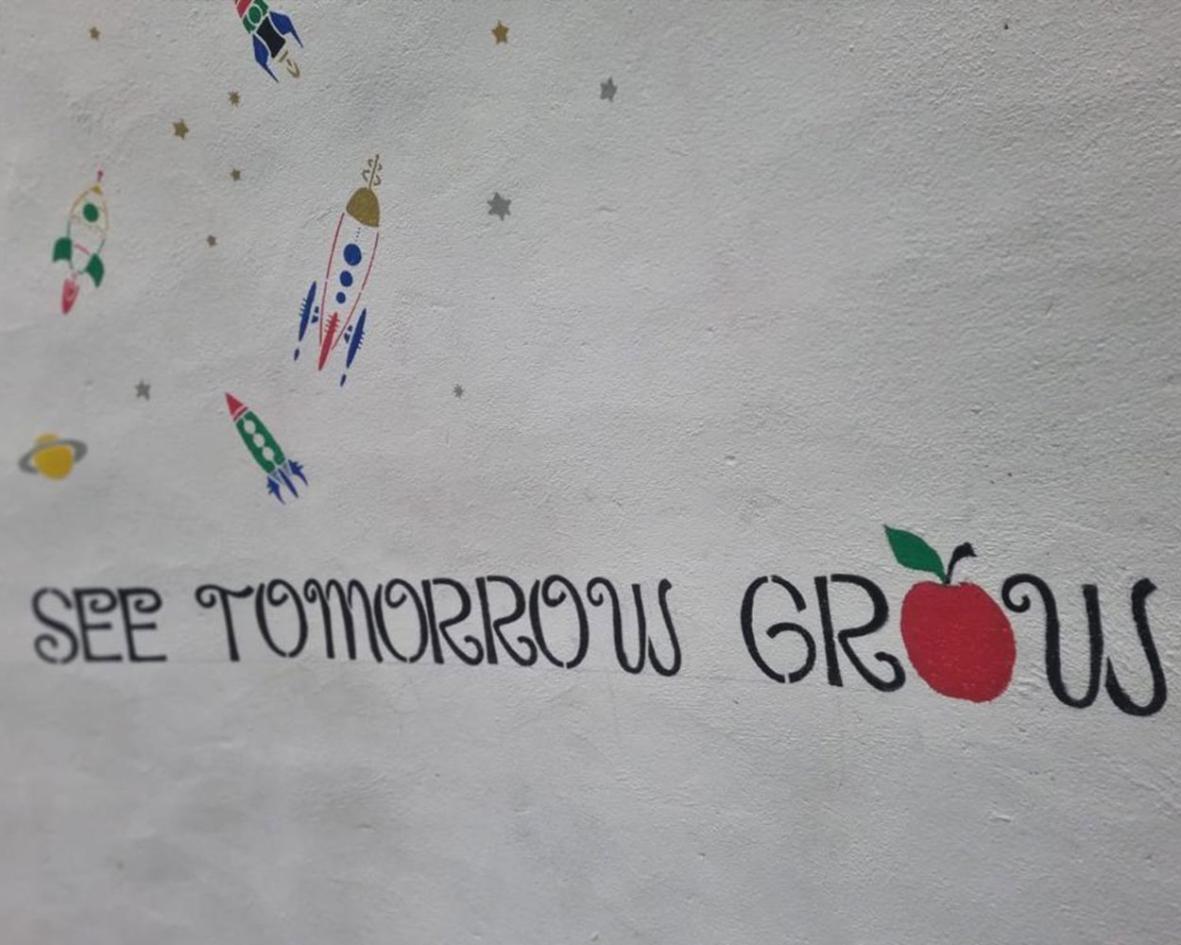 SEE TOMORROW GROW